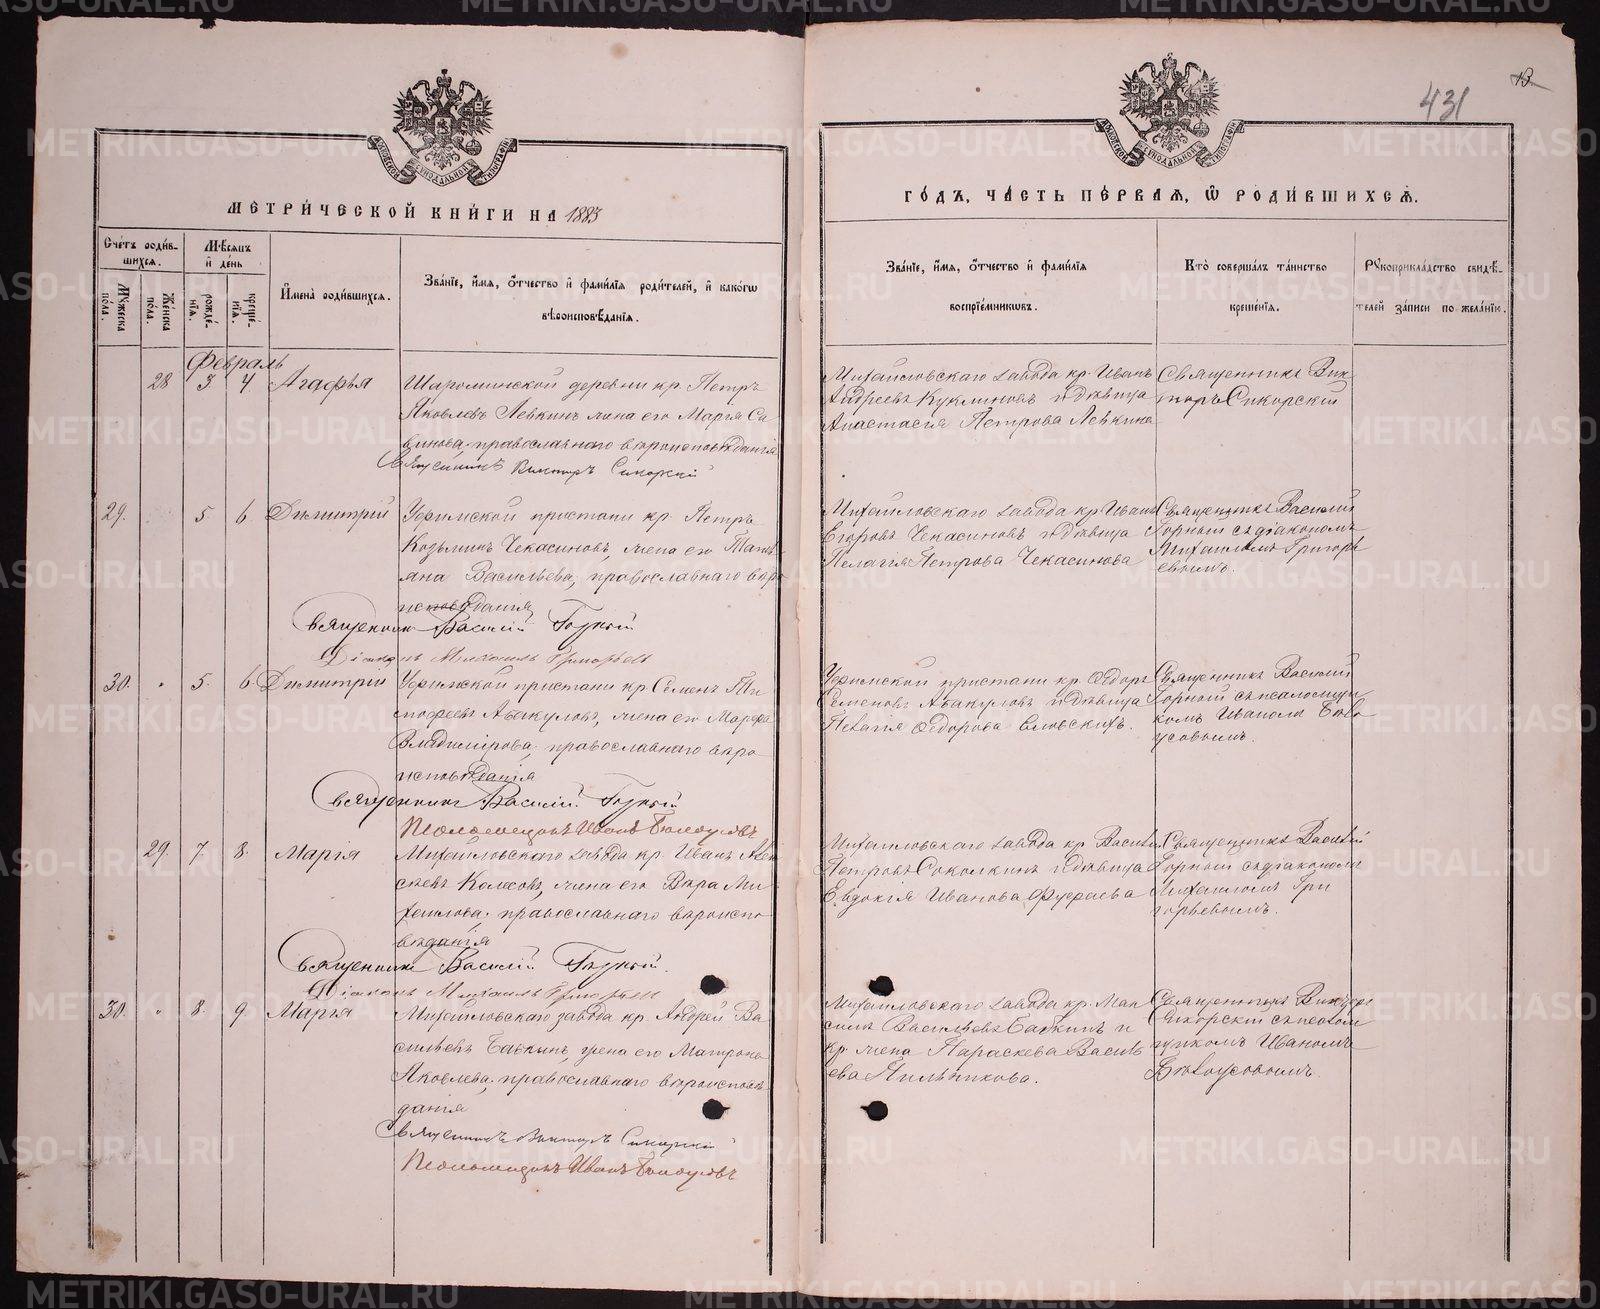 431
13
МЕТРИ́ЧЕСКОЙ КНИ́ГИ НА 1883
ГО́ДЪ, ЧА́СТЬ ПЕ́РВАѦ, Ѽ РОДИ́ВШИХСѦ.
Сче́тъ роди́в-
шихсѧ.
Мѣ́сѧцъ
и҆ де́нь
Мꙋ́жеска
по́ла.
Же́нска
по́ла.
рожде́-
нїѧ.
креще́-
нїѧ.
И҆мена̀ роди́вшихсѧ.
Зва́нїе, и҆́мѧ, ѻ҆́тчество и҆ фами́лїѧ роди́телей, и҆ како́гѡ
вѣроисповѣ́данїѧ.
Зва́нїе, и҆́мѧ, ѻ҆́тчество и҆ фами́лїѧ
воспрїе́мникѡвъ.
Кто̀ соверша́лъ та́инство
креще́нїѧ.
Рꙋкоприкла́дство свидѣ́-
телей за́писи по жела́нїю.
Февраль
28 3 4 Агафья
Шароминской деревни кр. Петръ
Яковлевъ Левкинъ жена его Марія Са-
винова, православнаго вѣроисповѣданія
Священникъ Викторъ Сикорскій
Михайловскаго завода кр. Иванъ
Андреевъ Куклиновъ и дѣвица
Анастасія Петрова Левкина
Священникъ Вик-
торъ Сикорскій
29. 5 6 Димитрій
Уфимской пристани кр. Петръ
Козьминъ Чекасиновъ, жена его Тать-
яна Васильева, православнаго вѣро-
исповѣданія
Священникъ Василій Горный
Діаконъ Михаилъ Григорьевъ
Михайловскаго завода кр. Иванъ
Егоровъ Чекасиновъ и дѣвица
Пелагія Петрова Чекасинова
Священникъ Василій
Горный съ діакономъ
Михаиломъ Григорь-
евымъ.
30. " 5. 6 Димитрій
Уфимской пристани кр. Семенъ Ти-
мофеевъ Авакуловъ, жена его Марфа
Владимірова, православнаго вѣро-
исповѣданія
Священникъ Василій Горный
Псаломщикъ Иванъ Бѣлоусовъ
Уфимской пристани кр. Ѳедоръ
Семеновъ Авакуловъ и дѣвица
Пелагія Ѳедорова
Священникъ Василій
Горный съ псаломщи-
комъ Иваномъ Бѣло-
усовымъ.
29. 7. 8. Марія
Михайловскаго завода кр. Иванъ Алек-
сѣевъ Колесовъ, жена его Вѣра Ми-
хаилова, православнаго вѣроиспо-
вѣданія
Священникъ Василій Горный.
Діаконъ Михаилъ Григорьевъ
Михайловскаго завода кр. Василій
Петровъ Соколкинъ и дѣвица
Евдокія Иванова
Священникъ Василій
Горный съ діакономъ
Михаиломъ Гри-
горьевымъ.
30. " 8. 9 Марія
Михайловскаго завода кр. Андрей Ва-
сильевъ Бабкинъ, жена его Матрона
Яковлева, православнаго вѣроисповѣ-
данія
Священникъ Викторъ Сикорскій
Псаломщикъ Иванъ Бѣлоусовъ
Михайловскаго завода кр. Мак-
симъ Васильевъ Бабкинъ и
кр. жена Параскева Василь-
ева Пильникова.
Священникъ Викторъ
Сикорскій съ псалом-
щикомъ Иваномъ
Бѣлоусовымъ.
METRIKI.GASO-URAL.RU